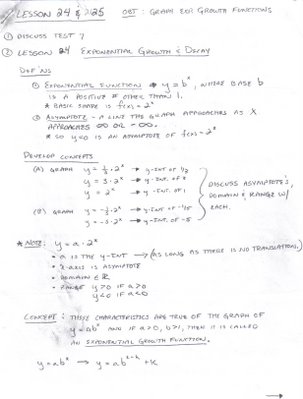 LESSON 24 & 25 OBJ: GRAPH EXP. GROWTH FUNCTIONS
① DISCUSS TEST 7
② LESSON 24 EXPONENTIAL GROWTH & DECAY
DEF'NS
① EXPONENTIAL FUNCTION → y = b^x, WHERE BASE b
IS A POSITIVE # OTHER THAN 1.
* BASIC SHAPE IS f(x) = 2^x
② ASYMPTOTE - A LINE THE GRAPH APPROACHES AS X
APPROACHES ∞ OR -∞.
* SO y=0 IS AN ASYMPTOTE OF f(x) = 2^x
DEVELOP CONCEPTS
(A) GRAPH y = 1/2 · 2^x → y-INT OF 1/2
y = 3 · 2^x → y-INT OF 3
y = 2^x → y-INT OF 1
(B) GRAPH y = -1/5 · 2^x → y-INT OF -1/5
y = -5 · 2^x → y-INT OF -5
DISCUSS ASYMPTOTES,
DOMAIN & RANGE W/
EACH.
* NOTE: y = a · 2^x
• a IS THE y-INT → (AS LONG AS THERE IS NO TRANSLATION.)
• X-AXIS IS ASYMPTOTE
• DOMAIN ∈ ℝ
• RANGE y>0 IF a>0
y<0 IF a<0
CONCEPT: THESE CHARACTERISTICS ARE TRUE OF THE GRAPH OF
y = ab^x AND IF a>0, b>1, THEN IT IS CALLED
AN EXPONENTIAL GROWTH FUNCTION.
y = ab^x → y = ab^(x-h) + K